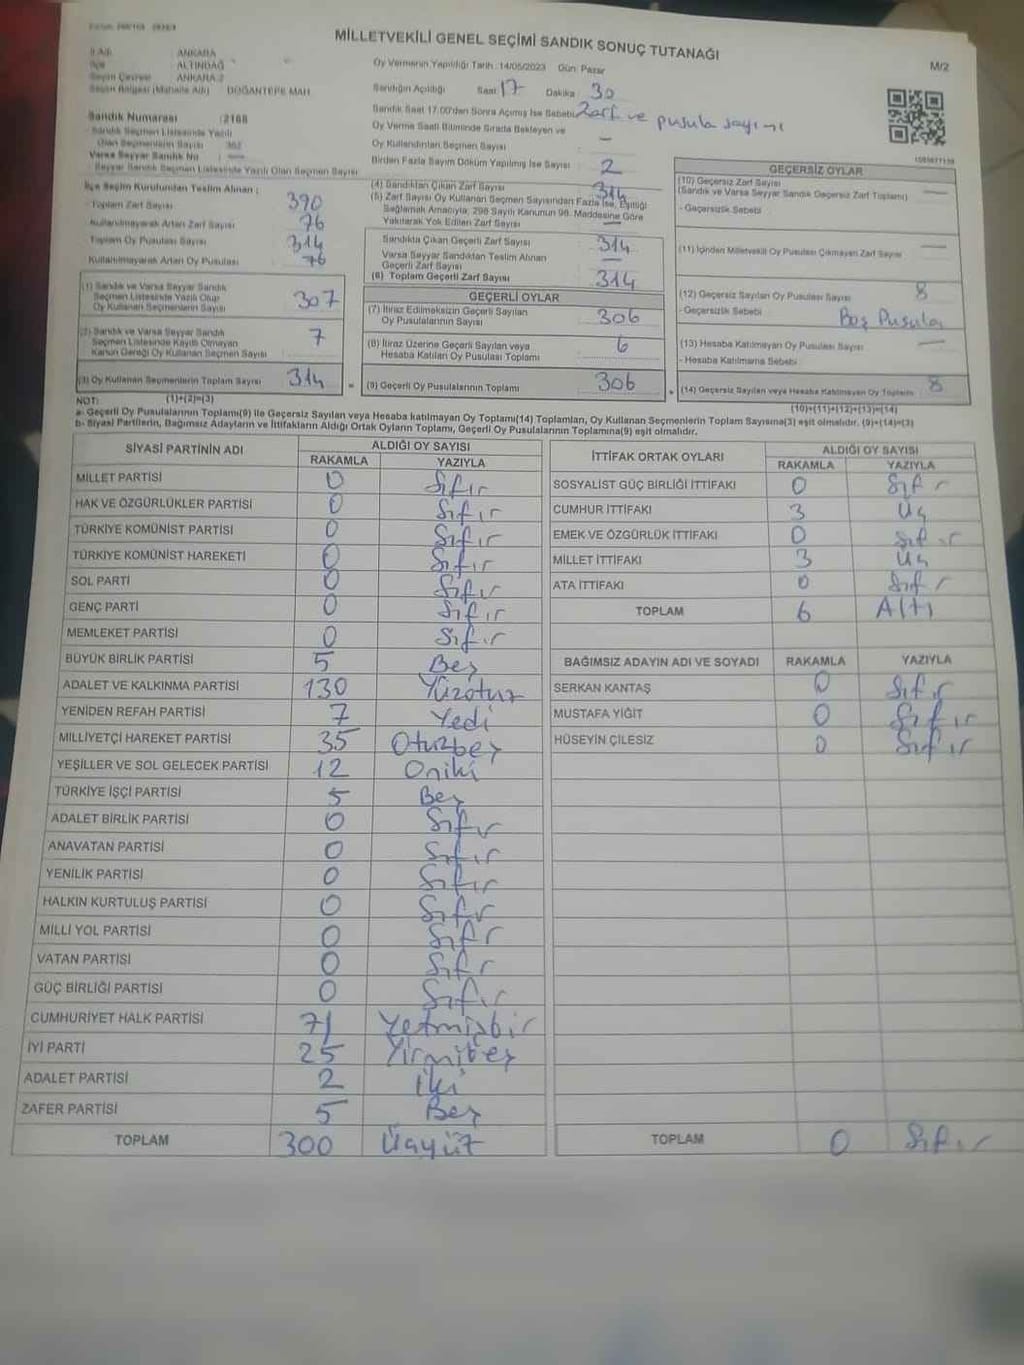 MİLLETVEKİLİ GENEL SEÇİMİ SANDIK SONUÇ TUTANAĞI
M/2
İl Adı ANKARA
İlçe ALTINDAĞ
Seçim Çevresi ANKARA 2
Seçim Bölgesi (Mahalle Adı) DOĞANTEPE MAH
Oy Vermenin Yapıldığı Tarih :14/05/2023 Gün: Pazar
Sandığın Açıldığı Saat 17 Dakika 30
Sandık Saat 17:00'den Sonra Açılmış İse Sebebi Zarf ve pusula sayımı
Oy Verme Saati Bitiminde Sırada Bekleyen ve
Oy Kullandırılan Seçmen Sayısı —
Birden Fazla Sayım Döküm Yapılmış İse Sayısı 2
Sandık Numarası :2168
Sandık Seçmen Listesinde Yazılı
Olan Seçmenlerin Sayısı
Varsa Seyyar Sandık No
Seyyar Sandık Seçmen Listesinde Yazılı Olan Seçmen Sayısı
İlçe Seçim Kurulundan Teslim Alınan ;
- Toplam Zarf Sayısı 390
Kullanılmayarak Artan Zarf Sayısı 76
Toplam Oy Pusulası Sayısı 314
Kullanılmayarak Artan Oy Pusulası 76
(1) Sandık ve Varsa Seyyar Sandık
Seçmen Listesinde Yazılı Olup
Oy Kullanan Seçmenlerin Sayısı 307
(2) Sandık ve Varsa Seyyar Sandık
Seçmen Listesinde Kayıtlı Olmayan
Kanun Gereği Oy Kullanan Seçmen Sayısı 7
(3) Oy Kullanan Seçmenlerin Toplam Sayısı 314
(4) Sandıktan Çıkan Zarf Sayısı 314
(5) Zarf Sayısı Oy Kullanan Seçmen Sayısından Fazla İse, Eşitliği
Sağlamak Amacıyla, 298 Sayılı Kanunun 98. Maddesine Göre
Yakılarak Yok Edilen Zarf Sayısı —
Sandıkta Çıkan Geçerli Zarf Sayısı 314
Varsa Seyyar Sandıktan Teslim Alınan
Geçerli Zarf Sayısı —
(6) Toplam Geçerli Zarf Sayısı 314
GEÇERLİ OYLAR
(7) İtiraz Edilmeksizin Geçerli Sayılan
Oy Pusulalarının Sayısı 306
(8) İtiraz Üzerine Geçerli Sayılan veya
Hesaba Katılan Oy Pusulası Toplamı 6
= (9) Geçerli Oy Pusulalarının Toplamı 306
GEÇERSİZ OYLAR
(10) Geçersiz Zarf Sayısı
(Sandık ve Varsa Seyyar Sandık Geçersiz Zarf Toplamı) —
- Geçersizlik Sebebi
(11) İçinden Milletvekili Oy Pusulası Çıkmayan Zarf Sayısı —
(12) Geçersiz Sayılan Oy Pusulası Sayısı 8
- Geçersizlik Sebebi Boş Pusula
(13) Hesaba Katılmayan Oy Pusulası Sayısı —
- Hesaba Katılmama Sebebi
+ (14) Geçersiz Sayılan veya Hesaba Katılmayan Oy Toplamı 8
NOT: (1)+(2)=(3) (10)+(11)+(12)+(13)=(14)
a- Geçerli Oy Pusulalarının Toplamı(9) ile Geçersiz Sayılan veya Hesaba katılmayan Oy Toplamı(14) Toplamları, Oy Kullanan Seçmenlerin Toplam Sayısına(3) eşit olmalıdır. (9)+(14)=(3)
b- Siyasi Partilerin, Bağımsız Adayların ve İttifakların Aldığı Ortak Oyların Toplamı, Geçerli Oy Pusulalarının Toplamına(9) eşit olmalıdır.
SİYASİ PARTİNİN ADI ALDIĞI OY SAYISI
RAKAMLA YAZIYLA
MİLLET PARTİSİ 0 Sıfır
HAK VE ÖZGÜRLÜKLER PARTİSİ 0 Sıfır
TÜRKİYE KOMÜNİST PARTİSİ 0 Sıfır
TÜRKİYE KOMÜNİST HAREKETİ 0 Sıfır
SOL PARTİ 0 Sıfır
GENÇ PARTİ 0 Sıfır
MEMLEKET PARTİSİ 0 Sıfır
BÜYÜK BİRLİK PARTİSİ 5 Beş
ADALET VE KALKINMA PARTİSİ 130 Yüzotuz
YENİDEN REFAH PARTİSİ 7 Yedi
MİLLİYETÇİ HAREKET PARTİSİ 35 Otuzbeş
YEŞİLLER VE SOL GELECEK PARTİSİ 12 Oniki
TÜRKİYE İŞÇİ PARTİSİ 5 Beş
ADALET BİRLİK PARTİSİ 0 Sıfır
ANAVATAN PARTİSİ 0 Sıfır
YENİLİK PARTİSİ 0 Sıfır
HALKIN KURTULUŞ PARTİSİ 0 Sıfır
MİLLİ YOL PARTİSİ 0 Sıfır
VATAN PARTİSİ 0 Sıfır
GÜÇ BİRLİĞİ PARTİSİ 0 Sıfır
CUMHURİYET HALK PARTİSİ 71 Yetmişbir
İYİ PARTİ 25 Yirmibeş
ADALET PARTİSİ 2 İki
ZAFER PARTİSİ 5 Beş
TOPLAM 300 Üçyüz
İTTİFAK ORTAK OYLARI ALDIĞI OY SAYISI
RAKAMLA YAZIYLA
SOSYALİST GÜÇ BİRLİĞİ İTTİFAKI 0 Sıfır
CUMHUR İTTİFAKI 3 Üç
EMEK VE ÖZGÜRLÜK İTTİFAKI 0 Sıfır
MİLLET İTTİFAKI 3 Üç
ATA İTTİFAKI 0 Sıfır
TOPLAM 6 Altı
BAĞIMSIZ ADAYIN ADI VE SOYADI RAKAMLA YAZIYLA
SERKAN KANTAŞ 0 Sıfır
MUSTAFA YİĞİT 0 Sıfır
HÜSEYİN ÇİLESİZ 0 Sıfır
TOPLAM 0 Sıfır